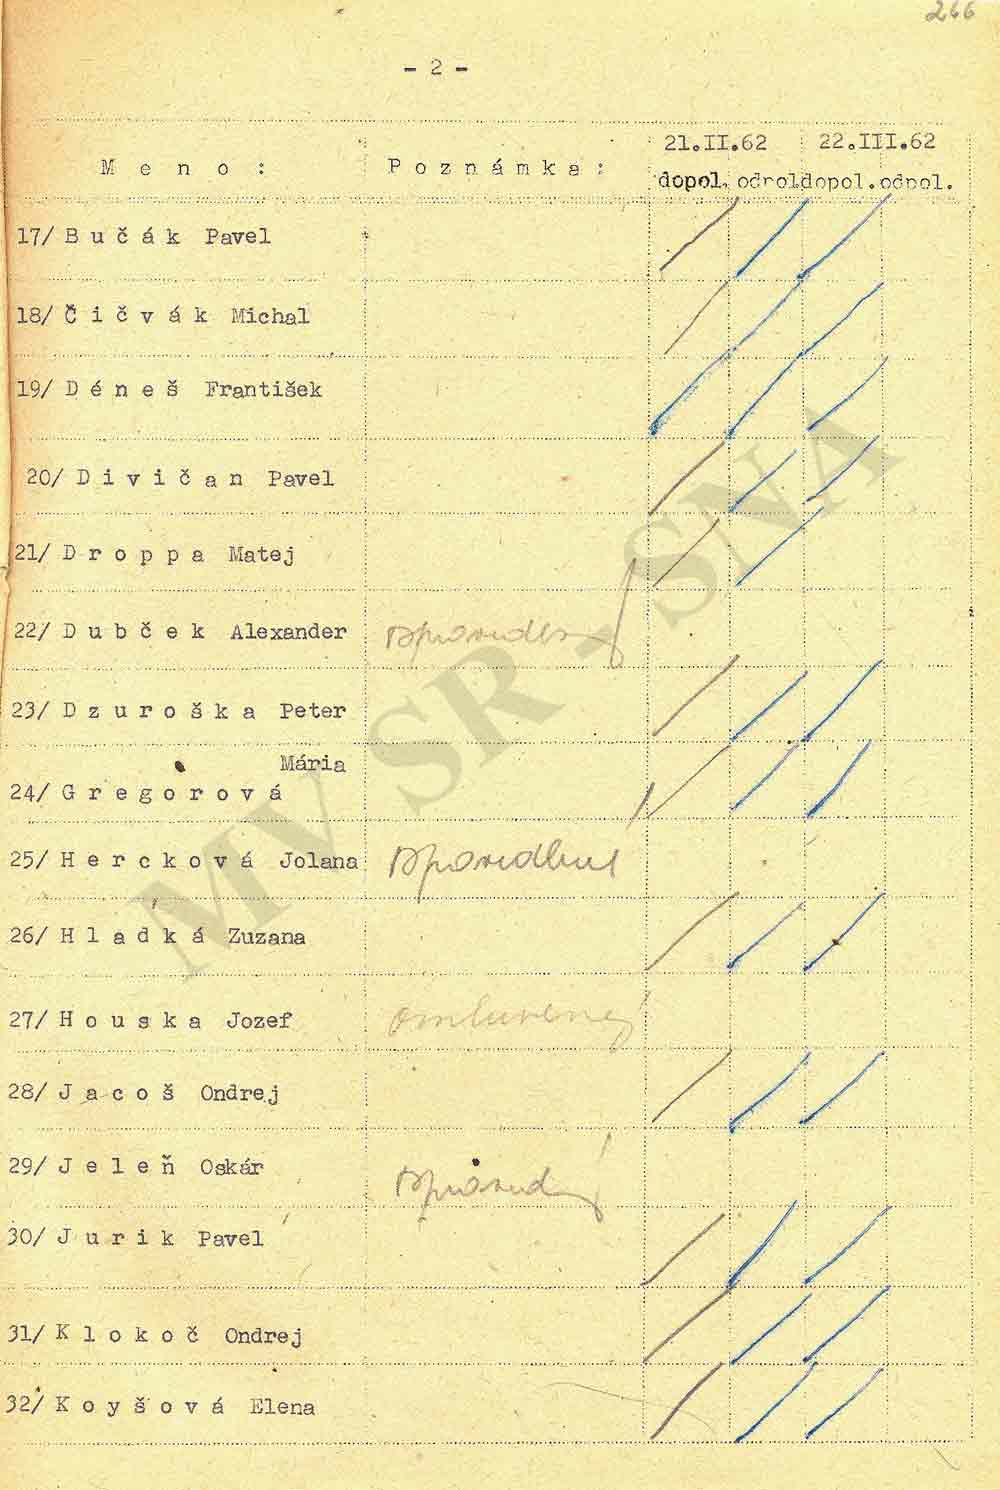 266
- 2 -
21.II.62 22.III.62
M e n o : P o z n á m k a :
dopol. odpol. dopol. odpol.
17/ B u č á k Pavel
18/ Č i č v á k Michal
19/ D é n e š František
20/ D i v i č a n Pavel
21/ D r o p p a Matej
22/ D u b č e k Alexander
23/ D z u r o š k a Peter
Mária
24/ G r e g o r o v á
25/ H e r c k o v á Jolana
26/ H l a d k á Zuzana
27/ H o u s k a Jozef omluvený
28/ J a c o š Ondrej
29/ J e l e ň Oskár
30/ J u r i k Pavel
31/ K l o k o č Ondrej
32/ K o y š o v á Elena
MV SR - SNA